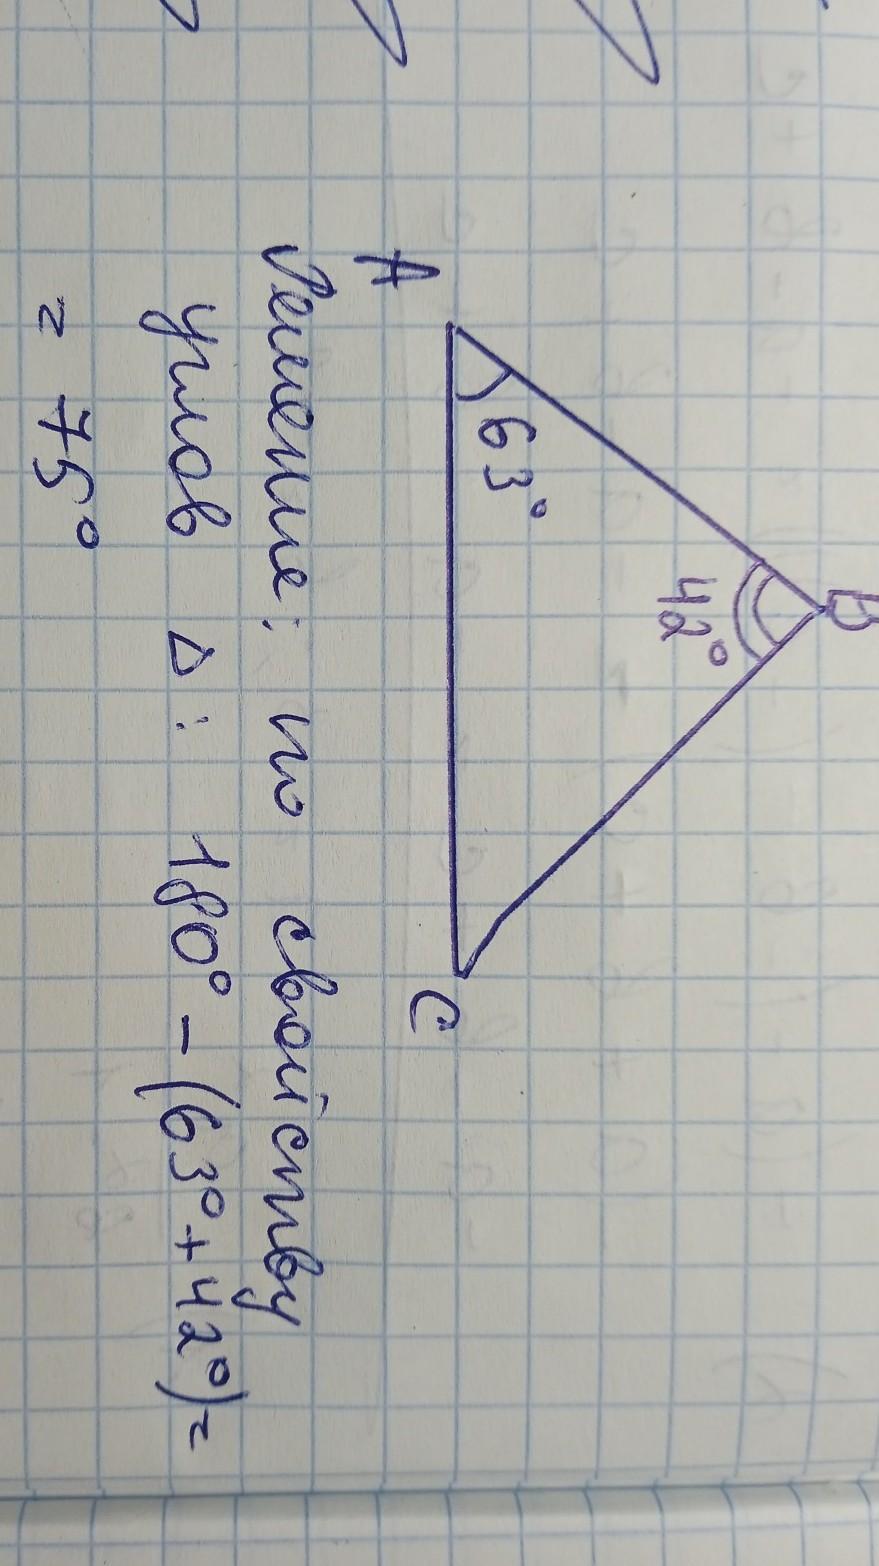 B
42°
63°
A
C
Решение: по свойству
углов Δ: 180° - (63° + 42°) =
= 75°